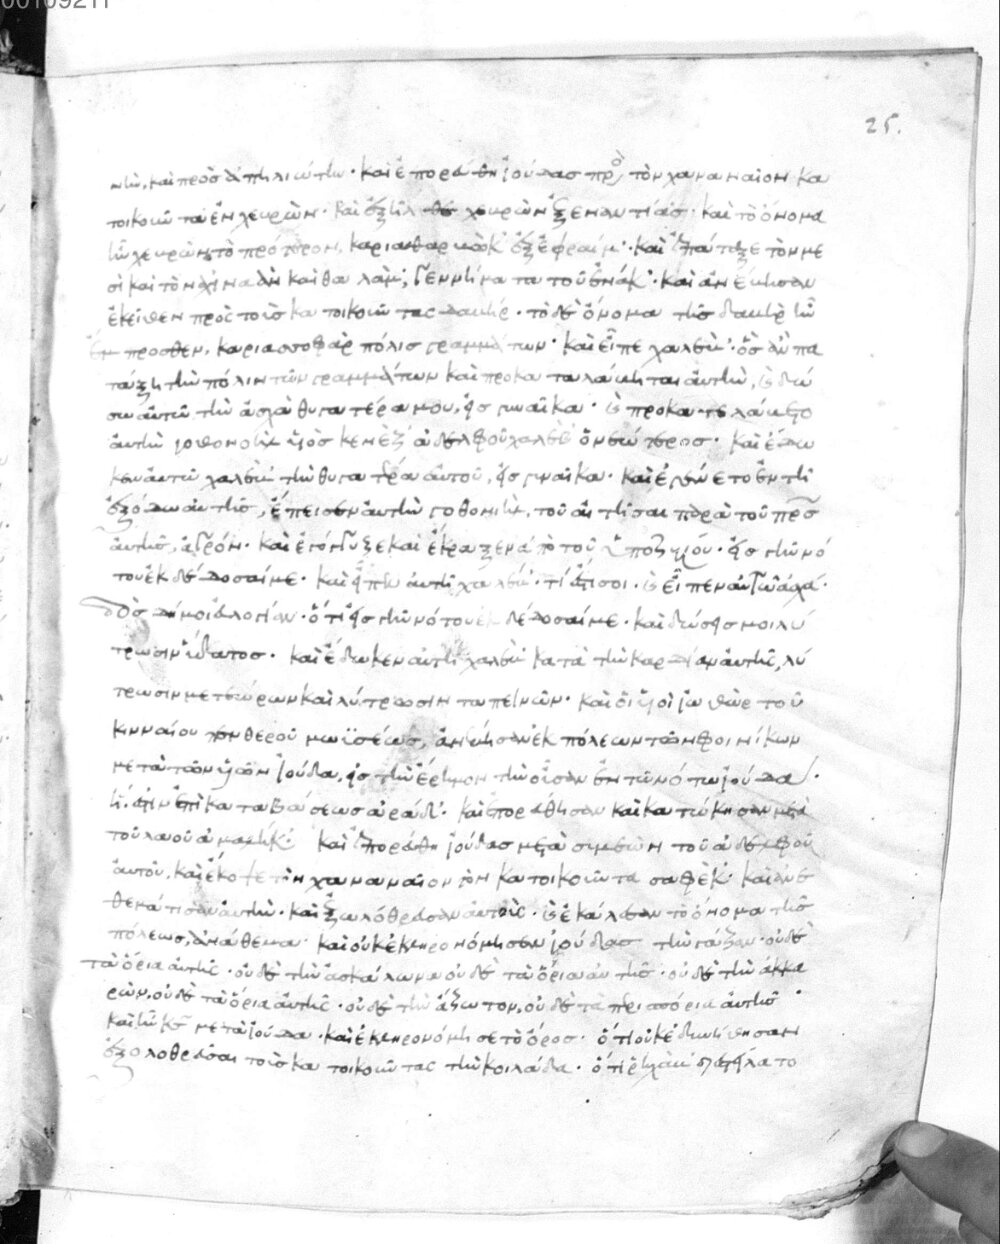 00109211
25.
καὶ πρὸς ἀπηλιώτην · καὶ ἐπορεύθη ἰούδας πρὸς τὸν χαναναῖον κα
τοικοῦντα ἐν χευρών · καὶ ἐξῆλθε χευρὼν ἐξεναντίας · καὶ τὸ ὄνομα
ἦν χευρὼν τὸ πρότερον, καριαθαρβὸκ ἐξ ἐφραίμ · καὶ ἐπάταξε τὸν με
σὶ καὶ τὸν ἀχιναὰν καὶ θαλάμ, γεννήματα τοῦ ἐνάκ · καὶ ἀνέβησαν
ἐκεῖθεν πρὸς τοὺς κατοικοῦντας δαβήρ · τὸ δὲ ὄνομα τῆς δαβὴρ ἦν
ἔμπροσθεν, καριασσωφὰρ πόλις γραμμάτων · καὶ εἶπε χαλέβ · ὃς ἂν πα
τάξῃ τὴν πόλιν τῶν γραμμάτων καὶ προκαταλάβηται αὐτὴν, δώ
σω αὐτῷ τὴν ἀσχὰ θυγατέρα μου, εἰς γυναῖκα · καὶ προκατελάβετο
αὐτὴν γοθονιὴλ υἱὸς κενὲζ ἀδελφοῦ χαλὲβ ὁ νεώτερος · καὶ ἔδω
κεν αὐτῷ χαλὲβ τὴν θυγατέρα αὐτοῦ, εἰς γυναῖκα · καὶ ἐγένετο ἐν τῇ
ἐξόδῳ αὐτῆς, ἐπέισεν αὐτὴν γοθονιὴλ, τοῦ αἰτῆσαι παρὰ τοῦ πρς
αὐτῆς, ἀγρόν · καὶ ἐγόγγυζε καὶ ἔκραξεν ἀπὸ τοῦ ὑποζυγίου · εἰς γῆν νό
του ἐκδέδοσαί με · καὶ εἶπεν αὐτῇ χαλέβ · τί ἐστί σοι · καὶ εἶπεν αὐτῷ ἀσχά ·
δὸς δή μοι εὐλογίαν · ὅτι εἰς γῆν νότου ἐκδέδοσαί με · καὶ δώσεις μοι λύ
τρωσιν ὕδατος · καὶ ἔδωκεν αὐτῇ χαλὲβ κατὰ τὴν καρδίαν αὐτῆς, λύ
τρωσιν μετεώρων καὶ λύτρωσιν ταπεινῶν · καὶ οἱ υἱοὶ ἰωθὼρ τοῦ
κιναίου πενθεροῦ μωϋσέως, ἀνέβησαν ἐκ πόλεως τῶν φοινίκων
μετὰ τῶν υἱῶν ἰούδα, εἰς τὴν ἔρημον τὴν οὖσαν ἐν τῷ νότῳ ἰούδα ·
ἥ ἐστιν ἐπὶ καταβάσεως ἀράδ · καὶ ἐπορεύθησαν καὶ κατῴκησαν μετὰ
τοῦ λαοῦ ἀμαλήκ · καὶ ἐπορεύθη ἰούδας μετὰ συμεὼν τοῦ ἀδελφοῦ
αὐτοῦ, καὶ ἔκοψε τὸν χαναναῖον τὸν κατοικοῦντα σαφὲκ · καὶ ἀνε
θεμάτισαν αὐτὴν · καὶ ἐξωλόθρευσαν αὐτούς · καὶ ἐκάλεσαν τὸ ὄνομα τῆς
πόλεως, ἀνάθεμα · καὶ οὐκ ἐκληρονόμησεν ἰούδας τὴν γάζαν · οὐδὲ
τὰ ὅρια αὐτῆς · οὐδὲ τὴν ἀσκάλωνα οὐδὲ τὰ ὅρια αὐτῆς · οὐδὲ τὴν ἀκκα
ρών, οὐδὲ τὰ ὅρια αὐτῆς · οὐδὲ τὴν ἄζωτον, οὐδὲ τὰ περισπόρια αὐτῆς ·
καὶ ἦν κς μετὰ ἰούδα · καὶ ἐκληρονόμησε τὸ ὄρος · ὅτι οὐκ ἐδυνήθησαν
ἐξολοθρεῦσαι τοὺς κατοικοῦντας τὴν κοιλάδα · ὅτι ῥηχὰβ διεστείλατο